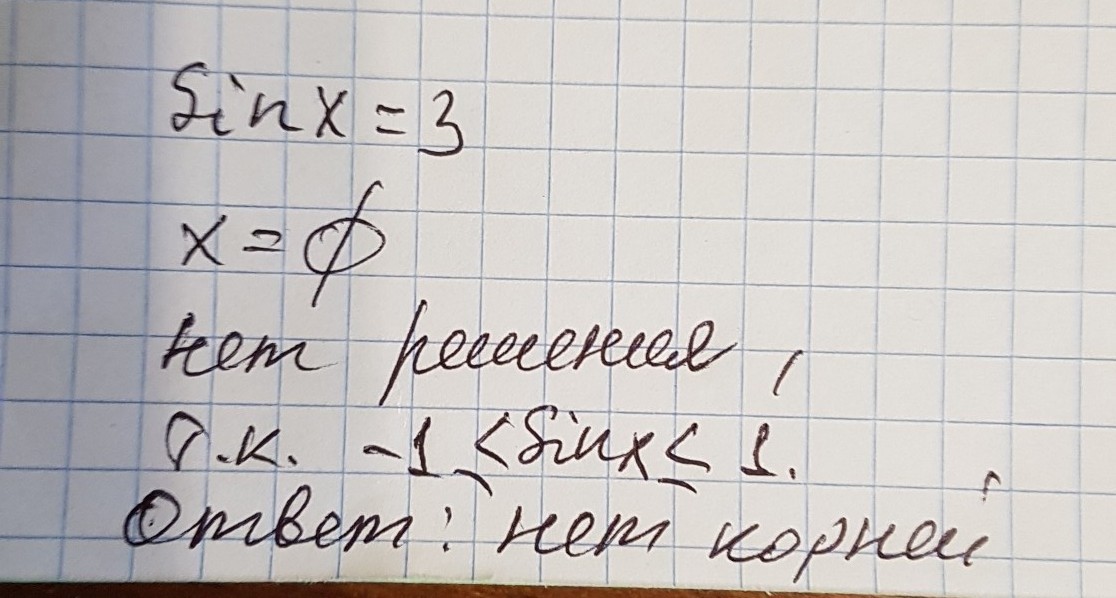 Sin x = 3
x = ∅
нет решения,
т.к. -1 ≤ Sin x ≤ 1.
Ответ: нет корней